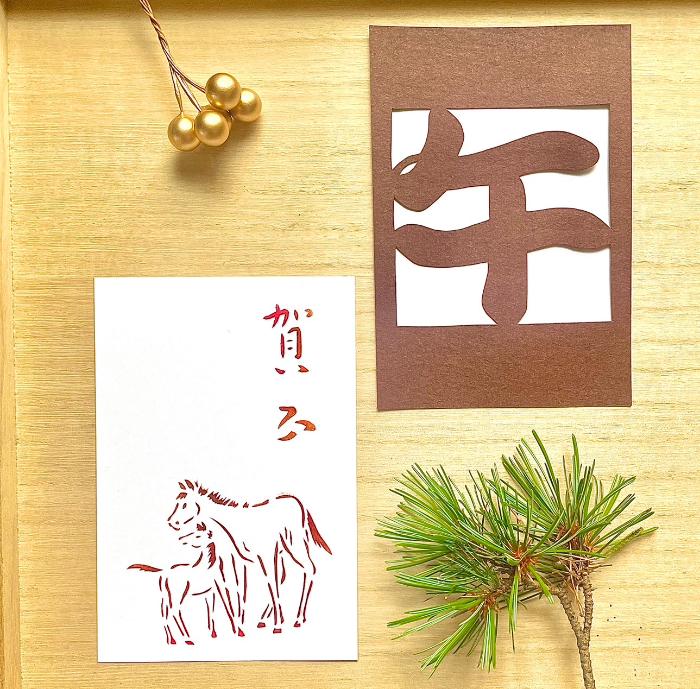 午
賀正